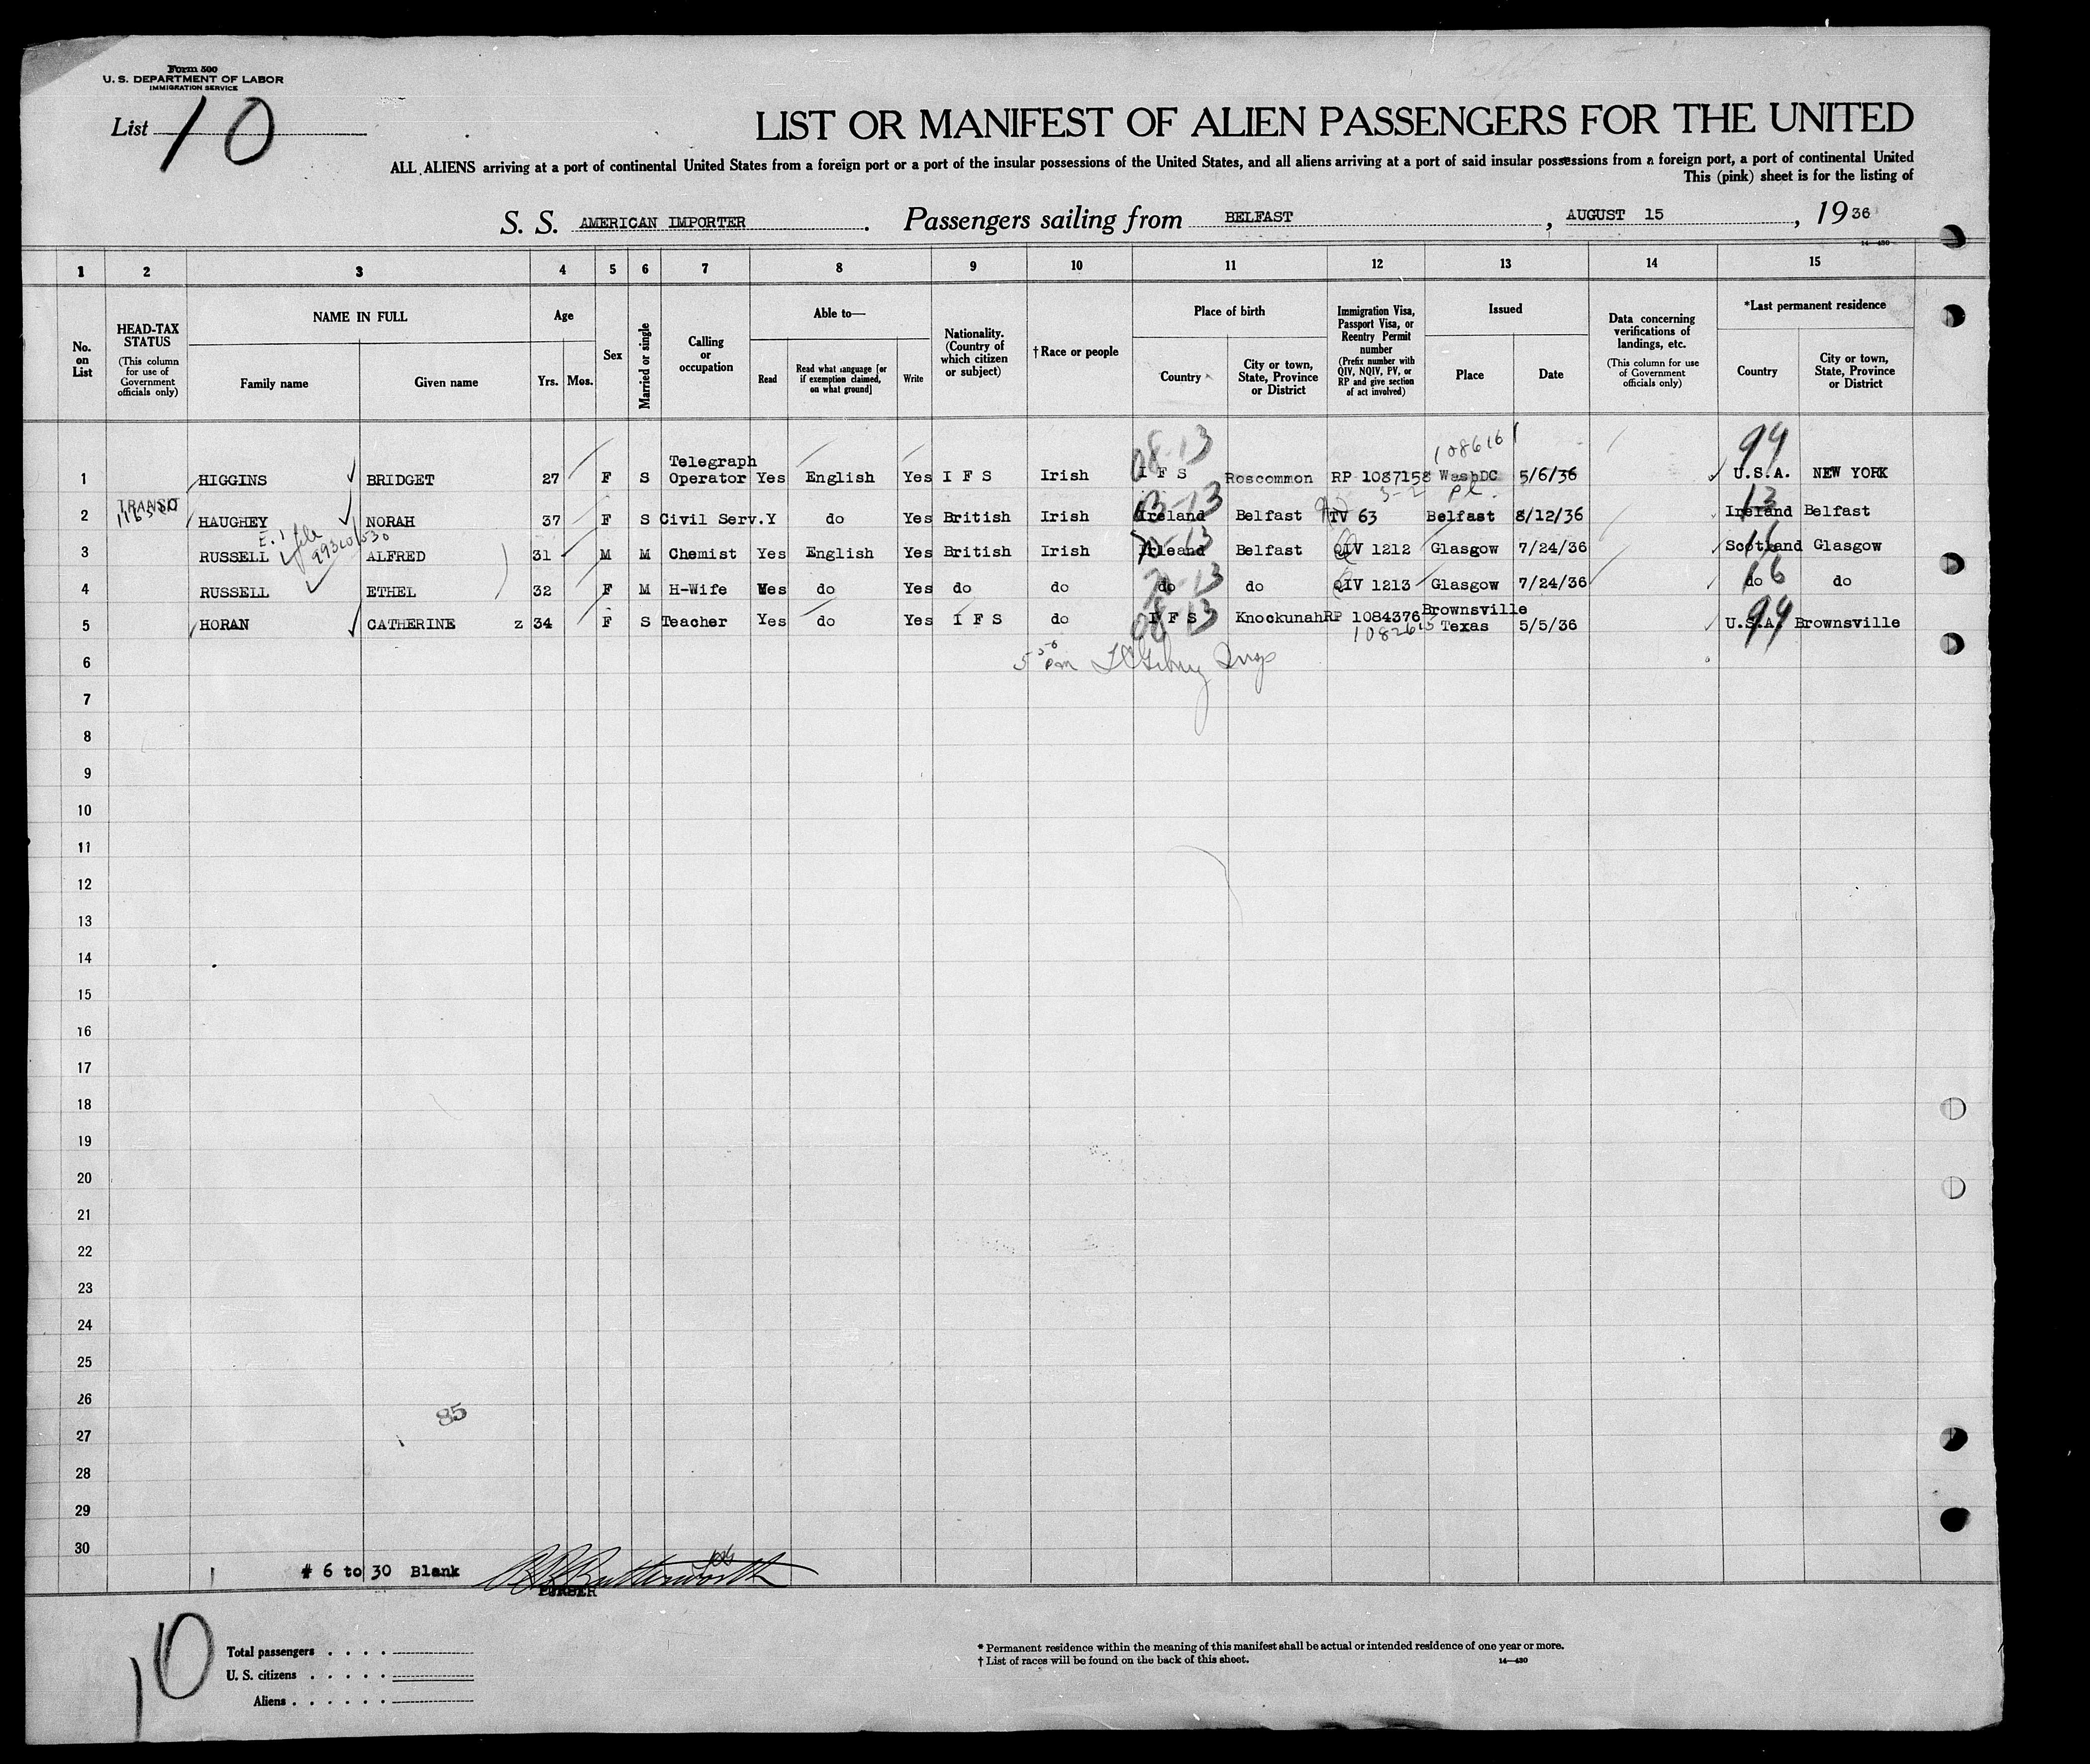 Form 500
U. S. DEPARTMENT OF LABOR
IMMIGRATION SERVICE
List 10
LIST OR MANIFEST OF ALIEN PASSENGERS FOR THE UNITED
ALL ALIENS arriving at a port of continental United States from a foreign port or a port of the insular possessions of the United States, and all aliens arriving at a port of said insular possessions from a foreign port, a port of continental United
This (pink) sheet is for the listing of
S. S. AMERICAN IMPORTER. Passengers sailing from BELFAST, AUGUST 15, 1936
14—430
1 2 3 4 5 6 7 8 9 10 11 12 13 14 15
No. on List
HEAD-TAX STATUS (This column for use of Government officials only)
NAME IN FULL
Family name Given name
Age
Yrs. Mos.
Sex
Married or single
Calling or occupation
Able to—
Read Read what language [or if exemption claimed, on what ground] Write
Nationality. (Country of which citizen or subject)
†Race or people
Place of birth
Country City or town, State, Province or District
Immigration Visa, Passport Visa, or Reentry Permit number (Prefix number with QIV, NQIV, PV, or RP and give section of act involved)
Issued
Place Date
Data concerning verifications of landings, etc. (This column for use of Government officials only)
*Last permanent residence
Country City or town, State, Province or District
08-13 108616 99
1 HIGGINS BRIDGET 27 F S Telegraph Operator Yes English Yes I F S Irish I F S Roscommon RP 1087158 WashDC 5/6/36 U.S.A. NEW YORK
TRANSIT 3-2 13
2 HAUGHEY NORAH 37 F S Civil Serv. Y do Yes British Irish Ireland Belfast TV 63 Belfast 8/12/36 Ireland Belfast
3 RUSSELL ALFRED 31 M M Chemist Yes English Yes British Irish Irleand Belfast QIV 1212 Glasgow 7/24/36 Scotland Glasgow
4 RUSSELL ETHEL 32 F M H-Wife Yes do Yes do do do do QIV 1213 Glasgow 7/24/36 do do
5 HORAN CATHERINE z 34 F S Teacher Yes do Yes I F S do I F S Knockunah RP 1084376 Brownsville Texas 5/5/36 U.S.A. Brownsville
08-13 99
6
7
8
9
10
11
12
13
14
15
16
17
18
19
20
21
22
23
24
25
26
85
27
28
29
30
# 6 to 30 Blank
Butterworth
PURSER
10
Total passengers
U. S. citizens
Aliens
* Permanent residence within the meaning of this manifest shall be actual or intended residence of one year or more.
† List of races will be found on the back of this sheet. 14—430